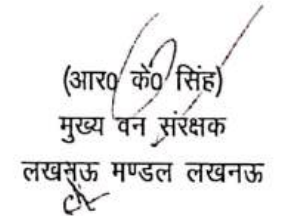 (आर0 के0 सिंह)
मुख्य वन संरक्षक
लखनऊ मण्डल लखनऊ